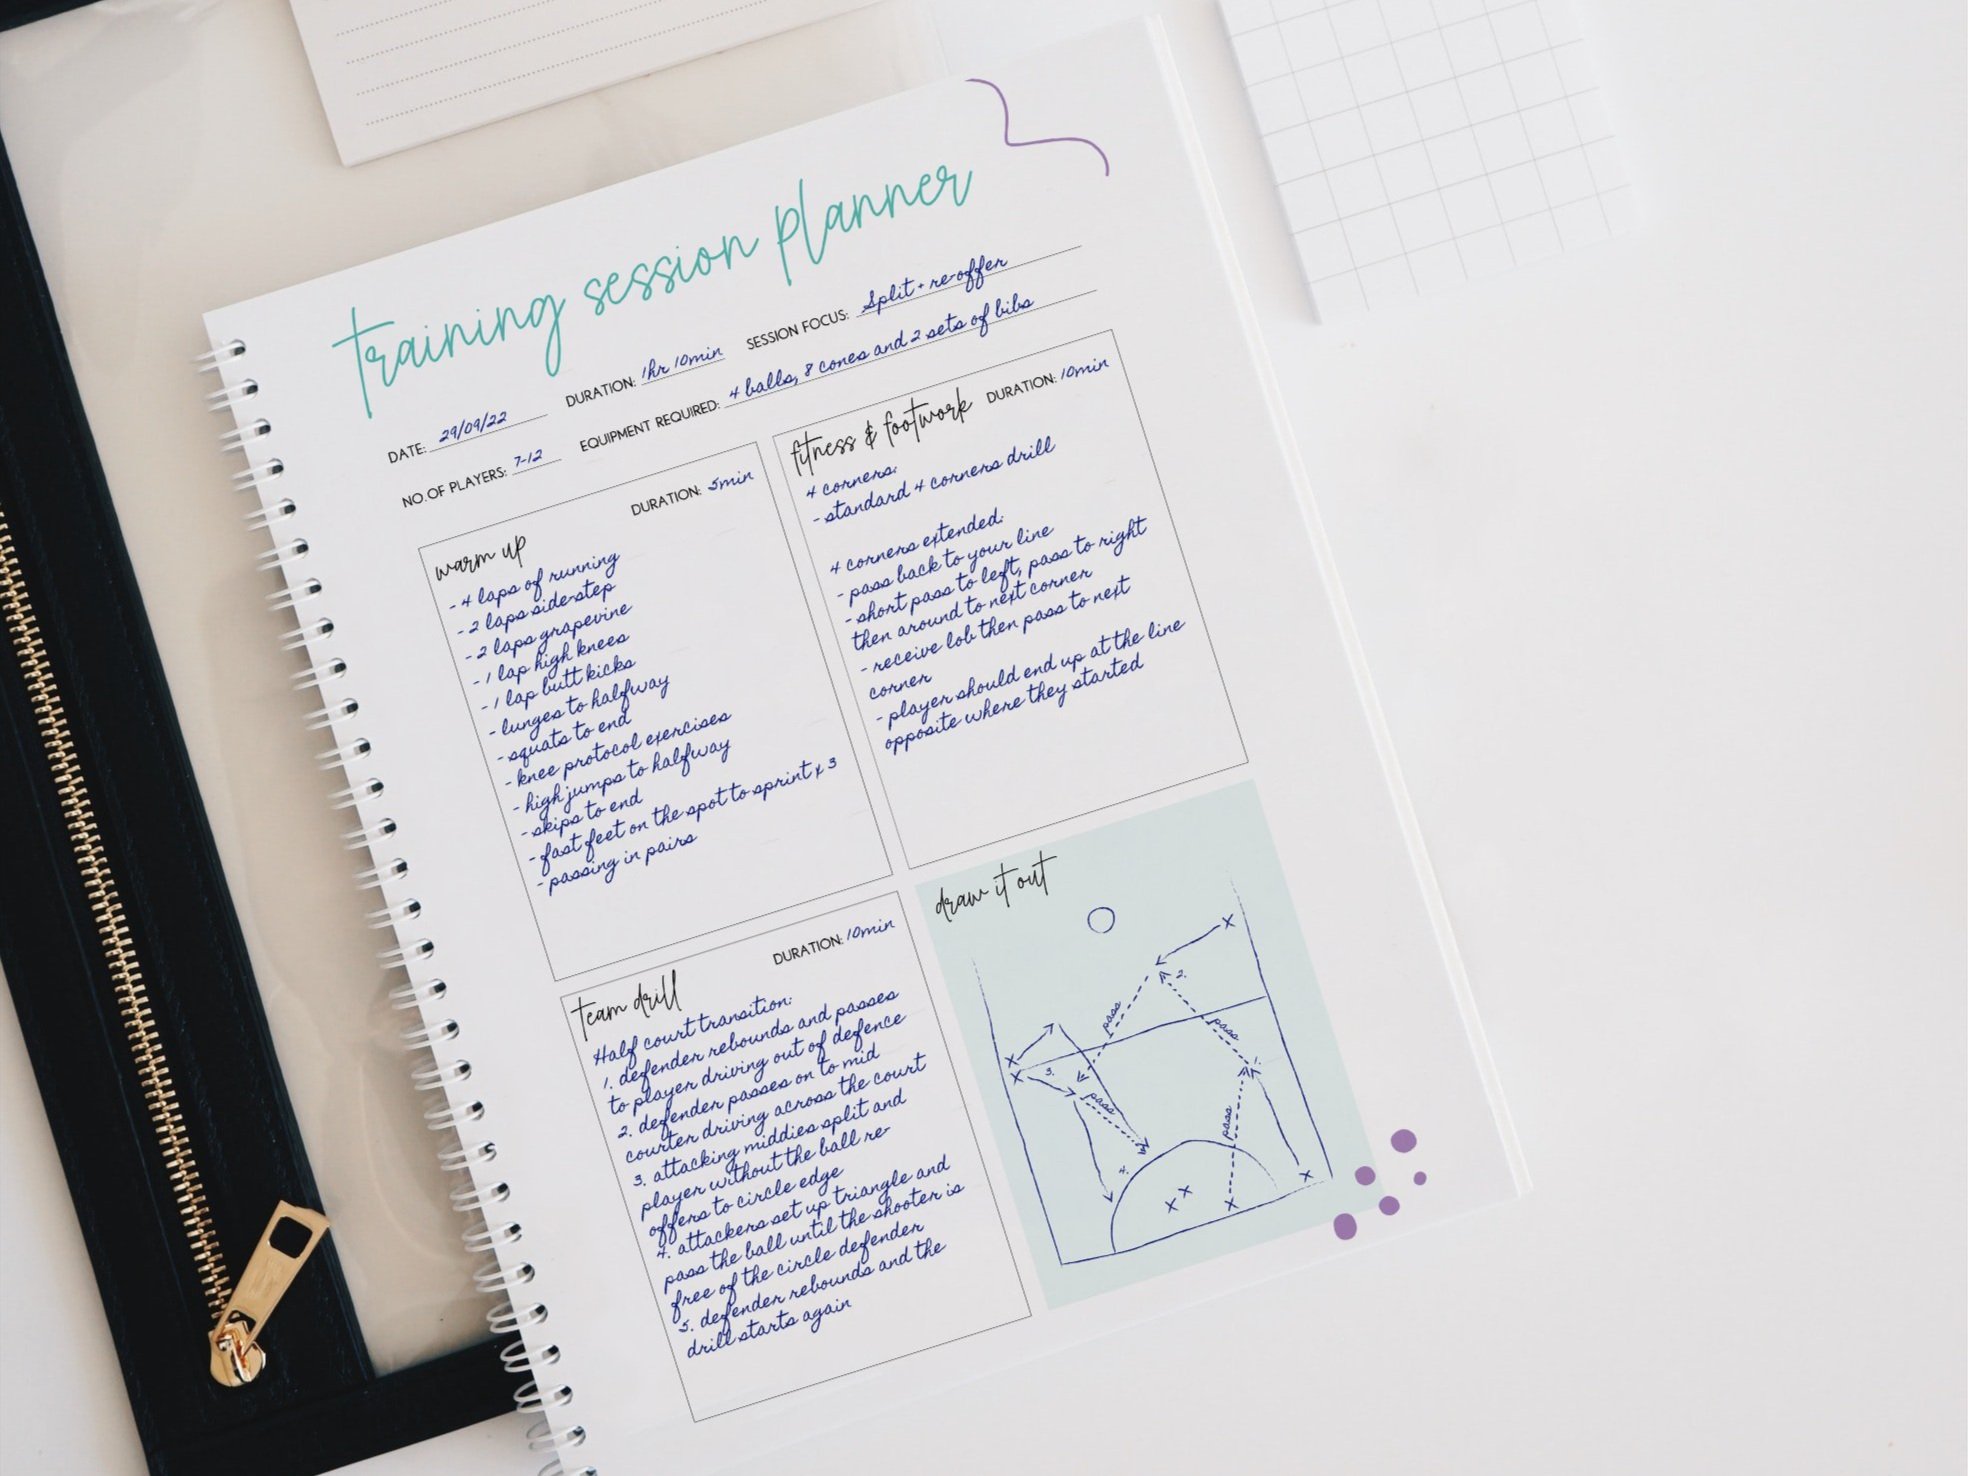 training session planner
DATE: 29/09/22 DURATION: 1hr 10min SESSION FOCUS: Split + re-offer
NO. OF PLAYERS: 7-12 EQUIPMENT REQUIRED: 4 balls, 8 cones and 2 sets of bibs
warm up DURATION: 5min
- 4 laps of running
- 2 laps side-step
- 2 laps grapevine
- 1 lap high knees
- 1 lap butt kicks
- lunges to halfway
- squats to end
- knee protocol exercises
- high jumps to halfway
- skips to end
- fast feet on the spot to sprint x 3
- passing in pairs
fitness & footwork DURATION: 10min
4 corners:
- standard 4 corners drill
4 corners extended:
- pass back to your line
- short pass to left, pass to right
then around to next corner
- receive lob then pass to next
corner
- player should end up at the line
opposite where they started
team drill DURATION: 10min
Half court transition:
1. defender rebounds and passes
to player driving out of defence
2. defender passes on to mid
courter driving across the court
3. attacking middies split and
player without the ball re-
offers to circle edge
4. attackers set up triangle and
pass the ball until the shooter is
free of the circle defender
5. defender rebounds and the
drill starts again
draw it out
x
2.
pass
pass
x
x
3.
1.
pass
pass
4.
x x
x
x